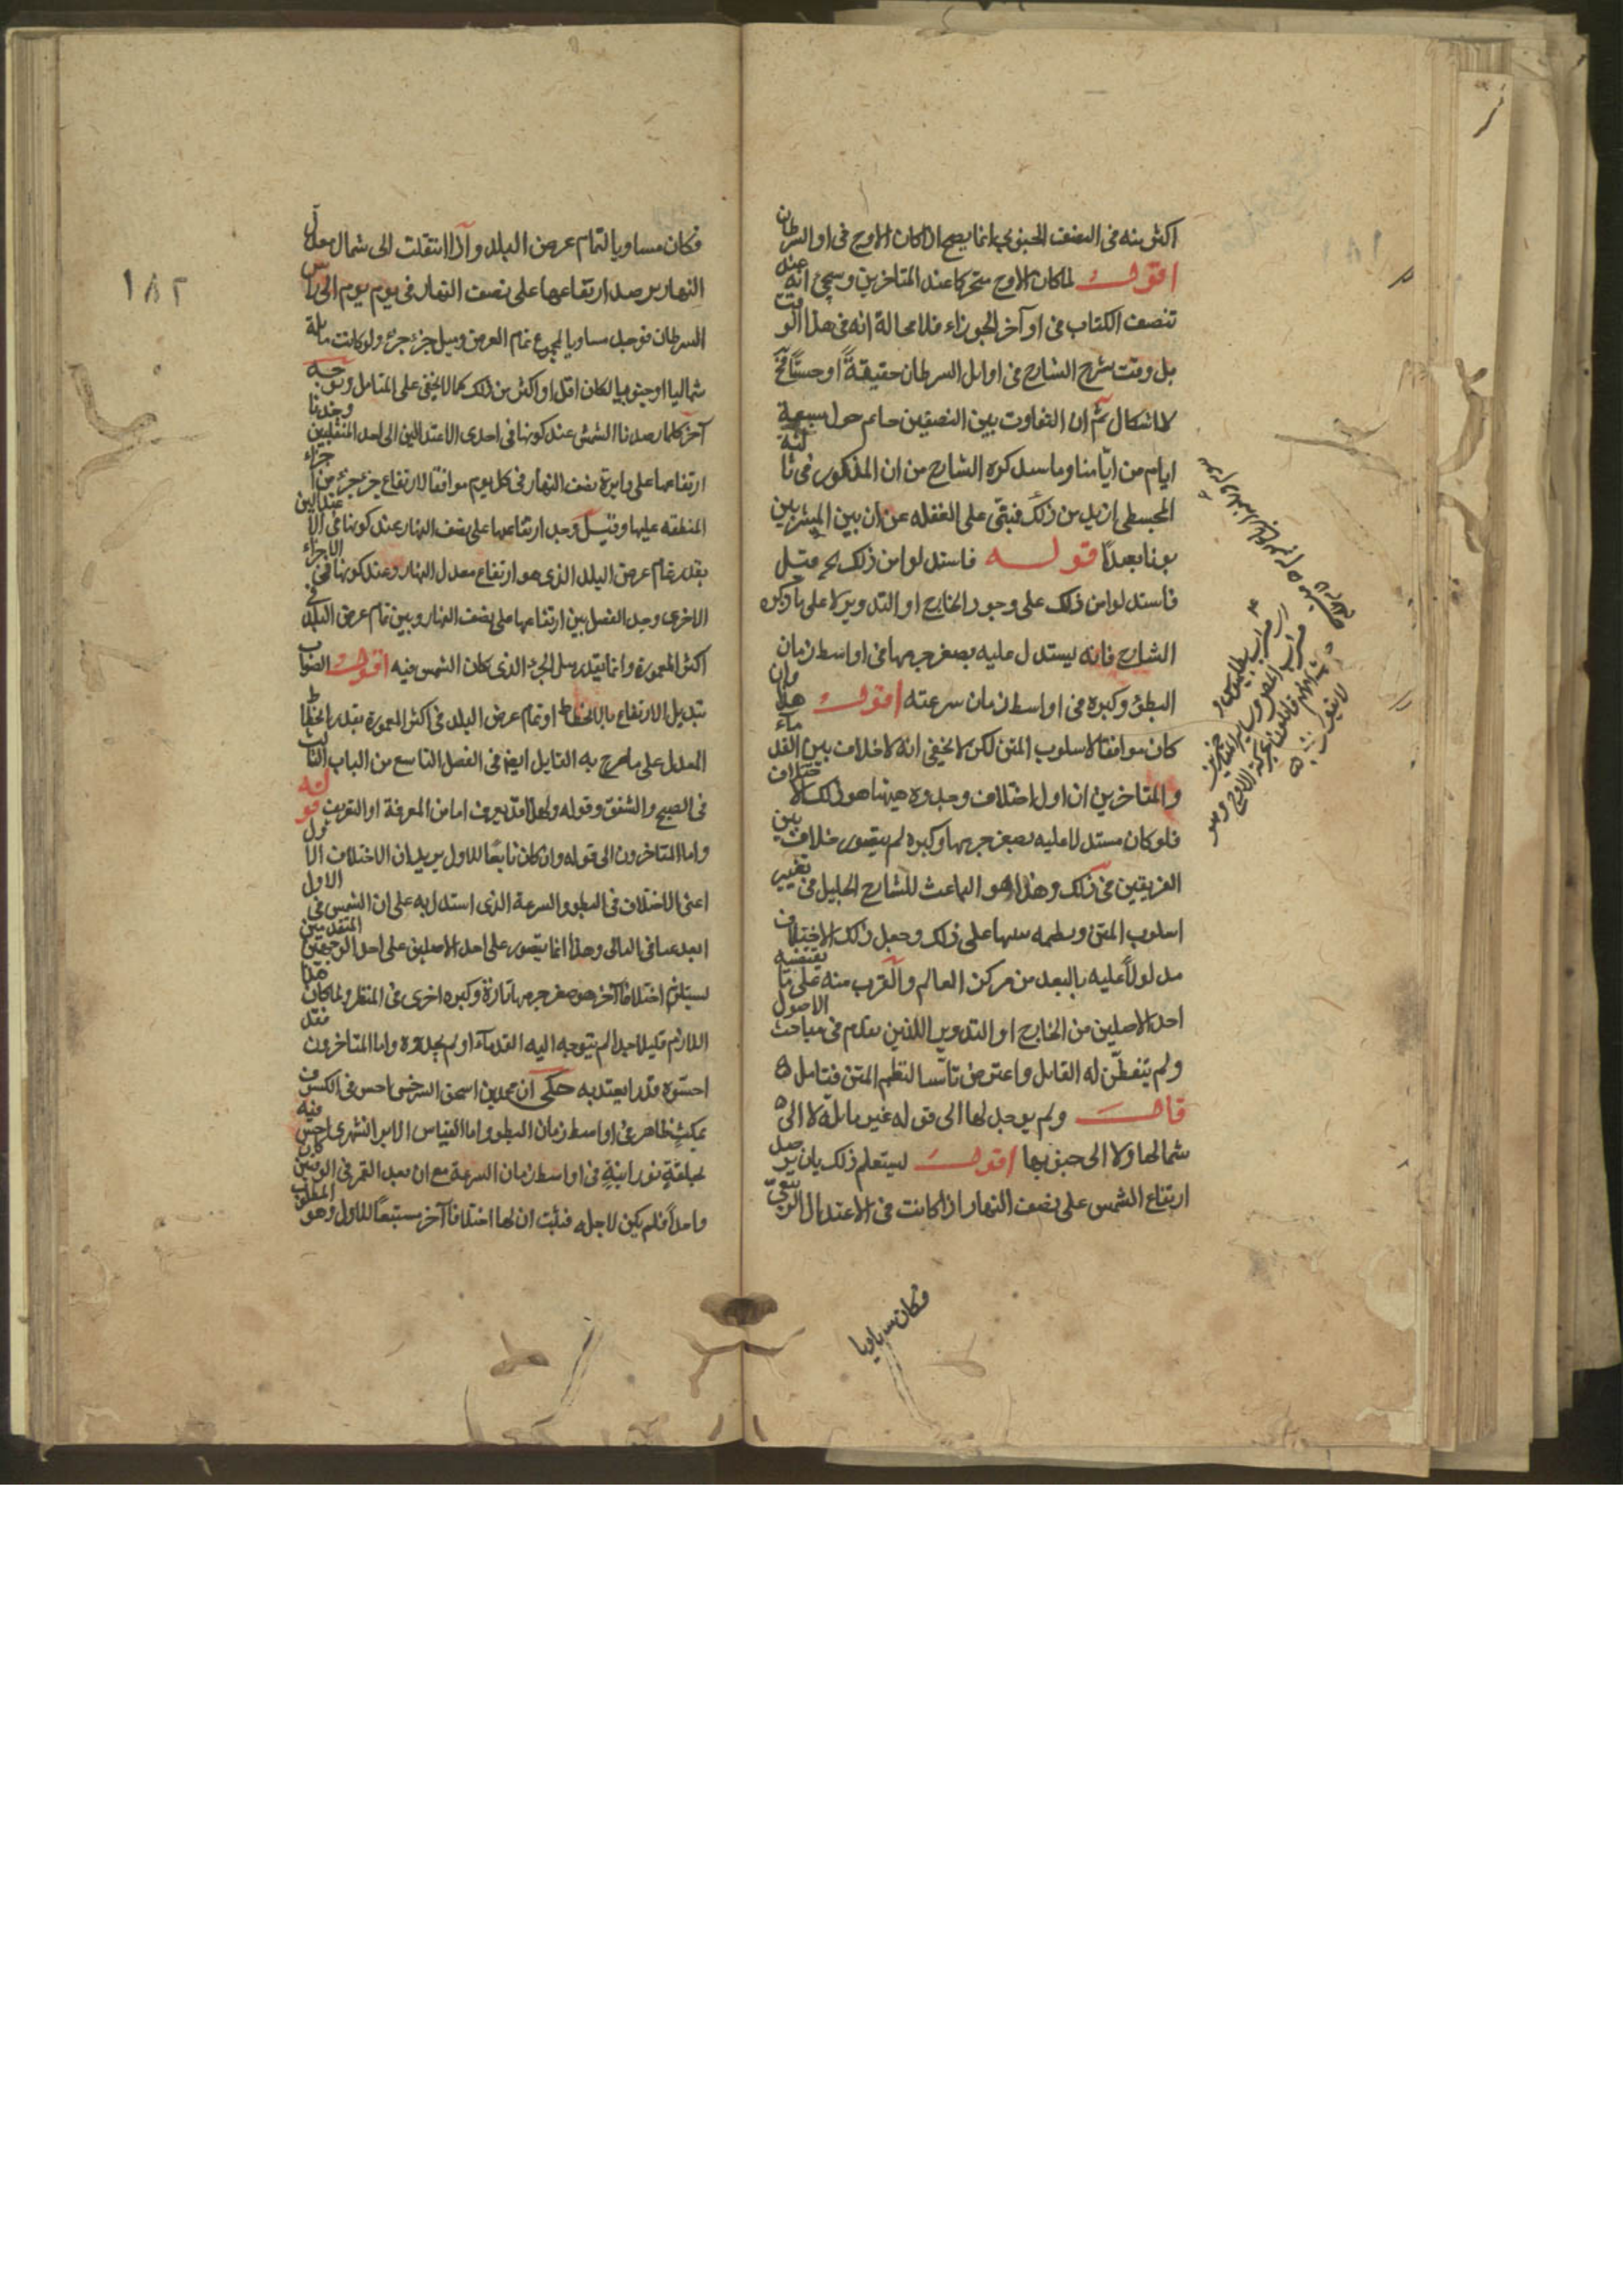 اكثر منه فى النصف الجنوبى انما يصح اذا كان الاوج فى اول السرطان
اقول لما كان الاوج متحركا عند المتاخرين وسيجئ انه عند
تصنيف الكتاب فى اوآخر الجوزاء فلا محالة انه فى هذا الوقت
بل وقت شرح الشارح فى اوايل السرطان حقيقةً او حسًّا فح
لا اشكال ثم ان التفاوت بين النصفين حايم حول سبعة
ايام من ايّامنا وما سيذكره الشارح من ان المذكور فى ثالثة
المجسطى ازيد من ذلك فبنى على الغفله عن ان بين
بونا بعيداً قوله فاستدلوا من ذلك الخ قيل
فاستدلوا من ذلك على وجود الخارج او التدوير لا على ما ذكره
الشارح فانه يستدل عليه بصغر جرمها فى اواسط زمان
البطؤ وكبره فى اواسط زمان سرعته اقول هذا وان
كان موافقا لاسلوب المتن لكن لا يخفى انه لا خلاف بين القدماء
والمتاخرين ان اول اختلاف وجدوه هيهنا هو ذلك الاختلاف
فلو كان مستدلا عليه بصغر جرمها وكبره لم يتصور خلاف بين
الفريقين فى ذلك وهذا هو الباعث للشارح الجليل فى تغيير
اسلوب المتن على ذلك وجعل ذلك الاختلاف
مدلولاً عليه بالبعد من مركز العالم والقرب منه على ما يقتضيه
احد الاصلين من الخارج او التدوير اللذين تقدم فى مباحث الاصول
ولم يتفطّن له القايل واعترض تاسّيا لنظم المتن فتامل ه
قال ولم يوجد لها الى قوله غير مائلة لا الى
شمالها ولا الى جنوبها اقول ليستعلم ذلك بان يرصد
ارتفاع الشمس على نصف النهار اذا كانت فى الاعتدال الربيعىّ
فكان مساويا
١٨٢
فكان مساويا لتمام عرض البلد واذا انتقلت الى شمال معدل
النهار يرصد ارتفاعها على نصف النهار فى يوم يوم الى راس
السرطان فوجد مساويا لمجموع تمام العرض وميل جزء جزء ولو كانت مايلة
شماليا او جنوبيا لكان اقل او اكثر من ذلك كما لا يخفى على المتامل وبوجه
آخر كلما رصدنا الشمس عند كونها فى احدى الاعتدالين الى احد المنقلبين وجدنا
ارتفاعها على دايرة نصف النهار فى كل يوم موافقا لارتفاع جزء جزء من اجزاء
المنطقه عليها وقيل وجد ارتفاعها على نصف النهار عند كونها فى الاعتدالين
بقدر تمام عرض البلد الذى هو ارتفاع معدل النهار وعند كونها فى الاجزاء
الاخرى وجد الفضل بين ارتفاعها على نصف النهار وبين تمام عرض البلد فى
اكثر المعمورة وانما يقدر ميل الجزء الذى كان الشمس فيه اقول الصواب
تبديل الارتفاع بالانحطاط او تمام عرض البلد فى اكثر المعمورة بقدر انحطاط
المعدل على ما صرح به القايل ايضا فى الفصل التاسع من الباب الثالث
فى الصبح والشفق وقوله ولهذا قد يعرف اما من المعرفة او التعريف قوله
واما المتاخرون الى قوله وان كان تابعًا للاول يريد ان الاختلاف الاول
اعنى الاختلاف فى البطو والسرعة الذى استدل به على ان الشمس فى الاول
ابعد عنا فى الثانى وهذا انما يتصور على احد الاصلين على احد الوجهين المتقدمين
يستلزم اختلافا آخر هو صغر جرمها تارة وكبره اخرى فى المنظر ولما كان هذا
اللازم قليلا جدا لم يتوجه اليه القدمآء او لم يجدوه واما المتاخرون فقد
احسّوه قدرا يعتد به حكى ان محمد بن اسحق السرخسى احس فى الكسوف
بمكث ظاهر فى اواسط زمان البطو واما القياس الايرانشهرى احسّ فيه
بحلقةٍ نورانيةٍ فى اواسط زمان السرعة مع ان بعد القمر فى الوقتين كان
واحداً فلم يكن لاجله فثبت ان لها اختلافا آخر مستتبعًا للاول وهو المطلوب